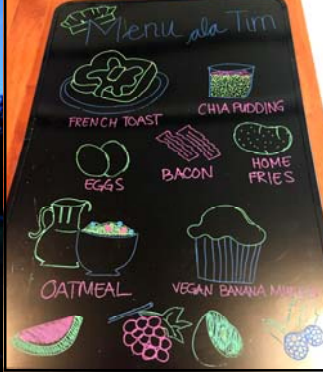 Menu ala Tim
FRENCH TOAST
CHIA PUDDING
EGGS
BACON
HOME
FRIES
OATMEAL
VEGAN BANANA